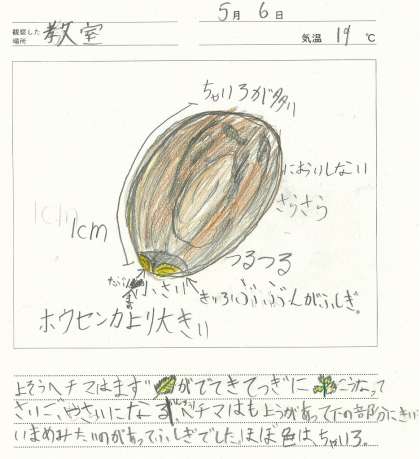 5月 6日
観察した場所 教室
気温 19 ℃
ちゃいろが多い
においしない
さらさら
1cm
1cm
つるつる
小さい
きいろいぶぶんがふしぎ。
ホウセンカより大きい
上そうヘチマはまず がでてきてつぎに こうなって
さいごやさいになる ヘチマはもようがあって下の部分にきい
いまめみたいのがあってふしぎでした。ほぼ色はちゃいろ。